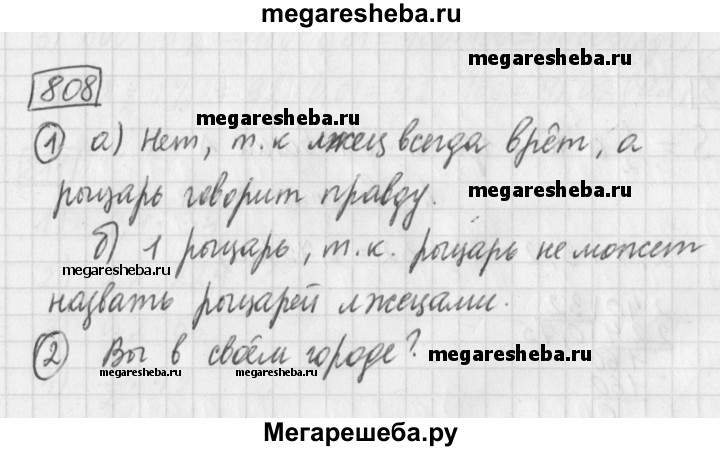 megaresheba.ru
megaresheba.ru
808
megaresheba.ru
1 а) Нет, т.к лжец всегда врёт, а
рыцарь говорит правду.
megaresheba.ru
б) 1 рыцарь, т.к. рыцарь не может
megaresheba.ru
назвать рыцарей лжецами.
2 Вы в своём городе?
megaresheba.ru
megaresheba.ru
megaresheba.ru
Мегарешеба.ру